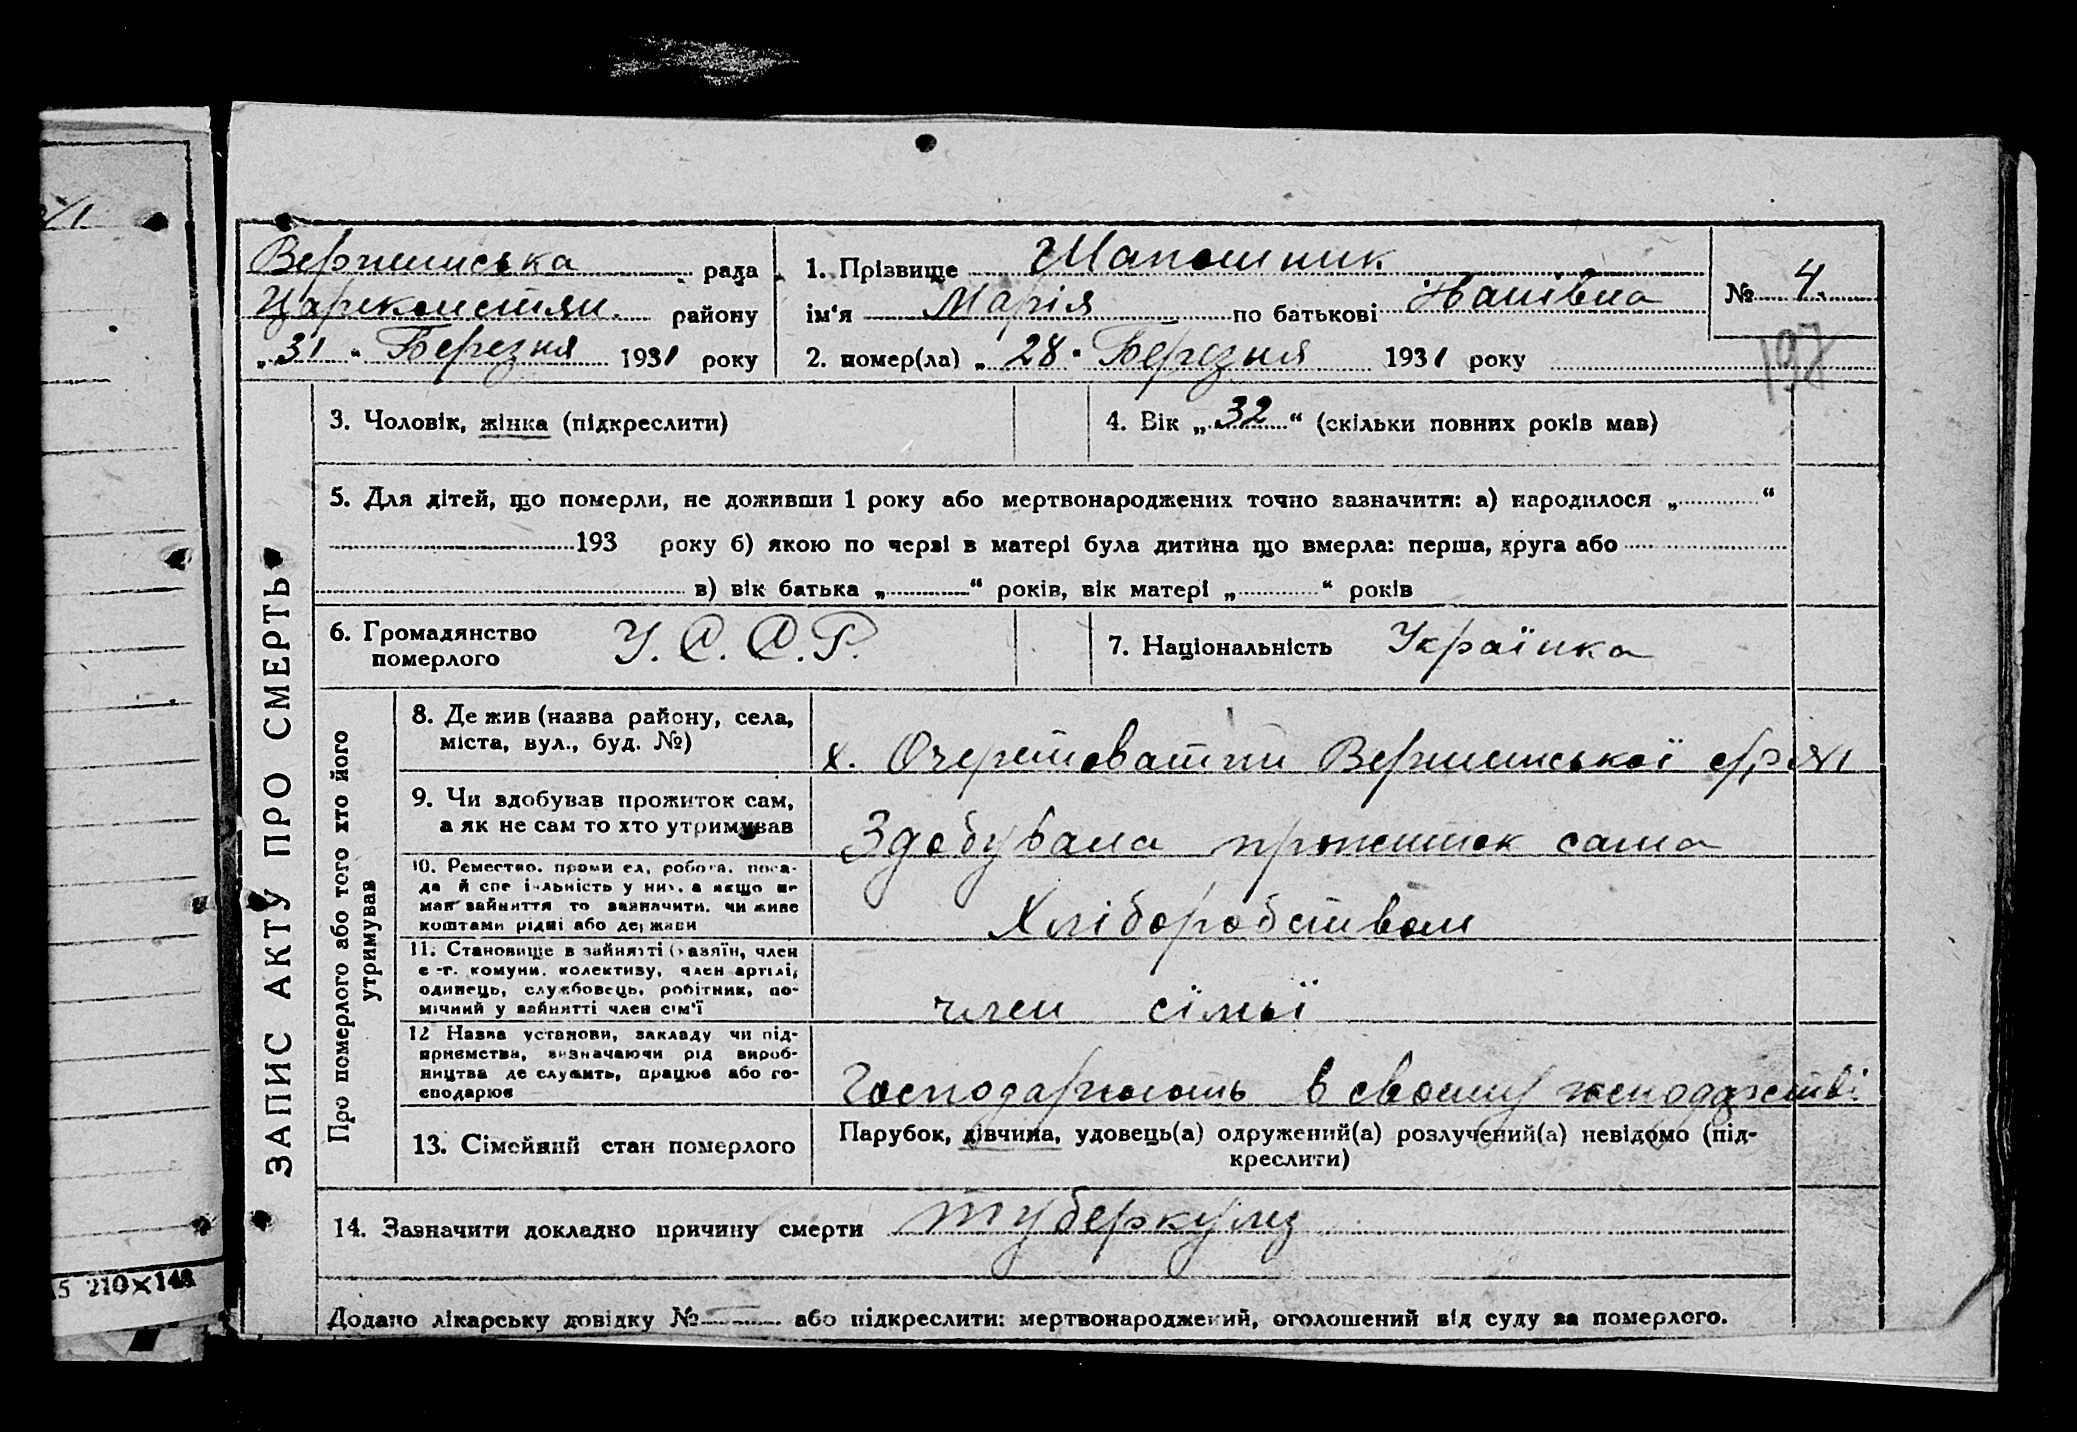 Вершинська рада
Цареконстян. району
„31“ Березня 1931 року
1. Прізвище Шапошник
ім‘я Марія по батькові Іванівна
№ 4.
2. помер(ла) „28“ Березня 1931 року
197
3. Чоловік, жінка (підкреслити)
4. Вік „32“ (скільки повних років мав)
5. Для дітей, що померли, не доживши 1 року або мертвонароджених точно зазначити: а) народилося „ “
193 року б) якою по черзі в матері була дитина що вмерла: перша, друга або
в) вік батька „ “ років, вік матері „ “ років
6. Громадянство
померлого
У.С.С.Р.
7. Національність Українка
ЗАПИС АКТУ ПРО СМЕРТЬ
Про померлого або того хто його
утримував
8. Де жив (назва району, села,
міста, вул., буд. №)
х. Очеретоватий Вершинської с/ради
9. Чи здобував прожиток сам,
а як не сам то хто утримував
Здобувала прожиток сама
10. Ремество, промисел, робота, поса-
да й спеціяльність у них, а якщо не
мав зайняття то зазначити, чи живе
коштами рідні або держави
Хліборобством
11. Становище в зайнятті (хазяїн, член
с.-г. комуни, колективу, член артілі,
одинець, службовець, робітник, по-
мічний у зайнятті член сім'ї
член сімьї
12 Назва установи, закладу чи під-
приємства, визначаючи рід вироб-
ництва де служить, працює або го-
сподарює
Господарюють в своєму господарстві
13. Сімейний стан померлого
Парубок, дівчина, удовець(а) одружений(а) розлучений(а) невідомо (під-
креслити)
14. Зазначити докладно причину смерти туберкулз
Додано лікарську довідку № — або підкреслити: мертвонароджений, оголошений від суду за померлого.
5 210×148